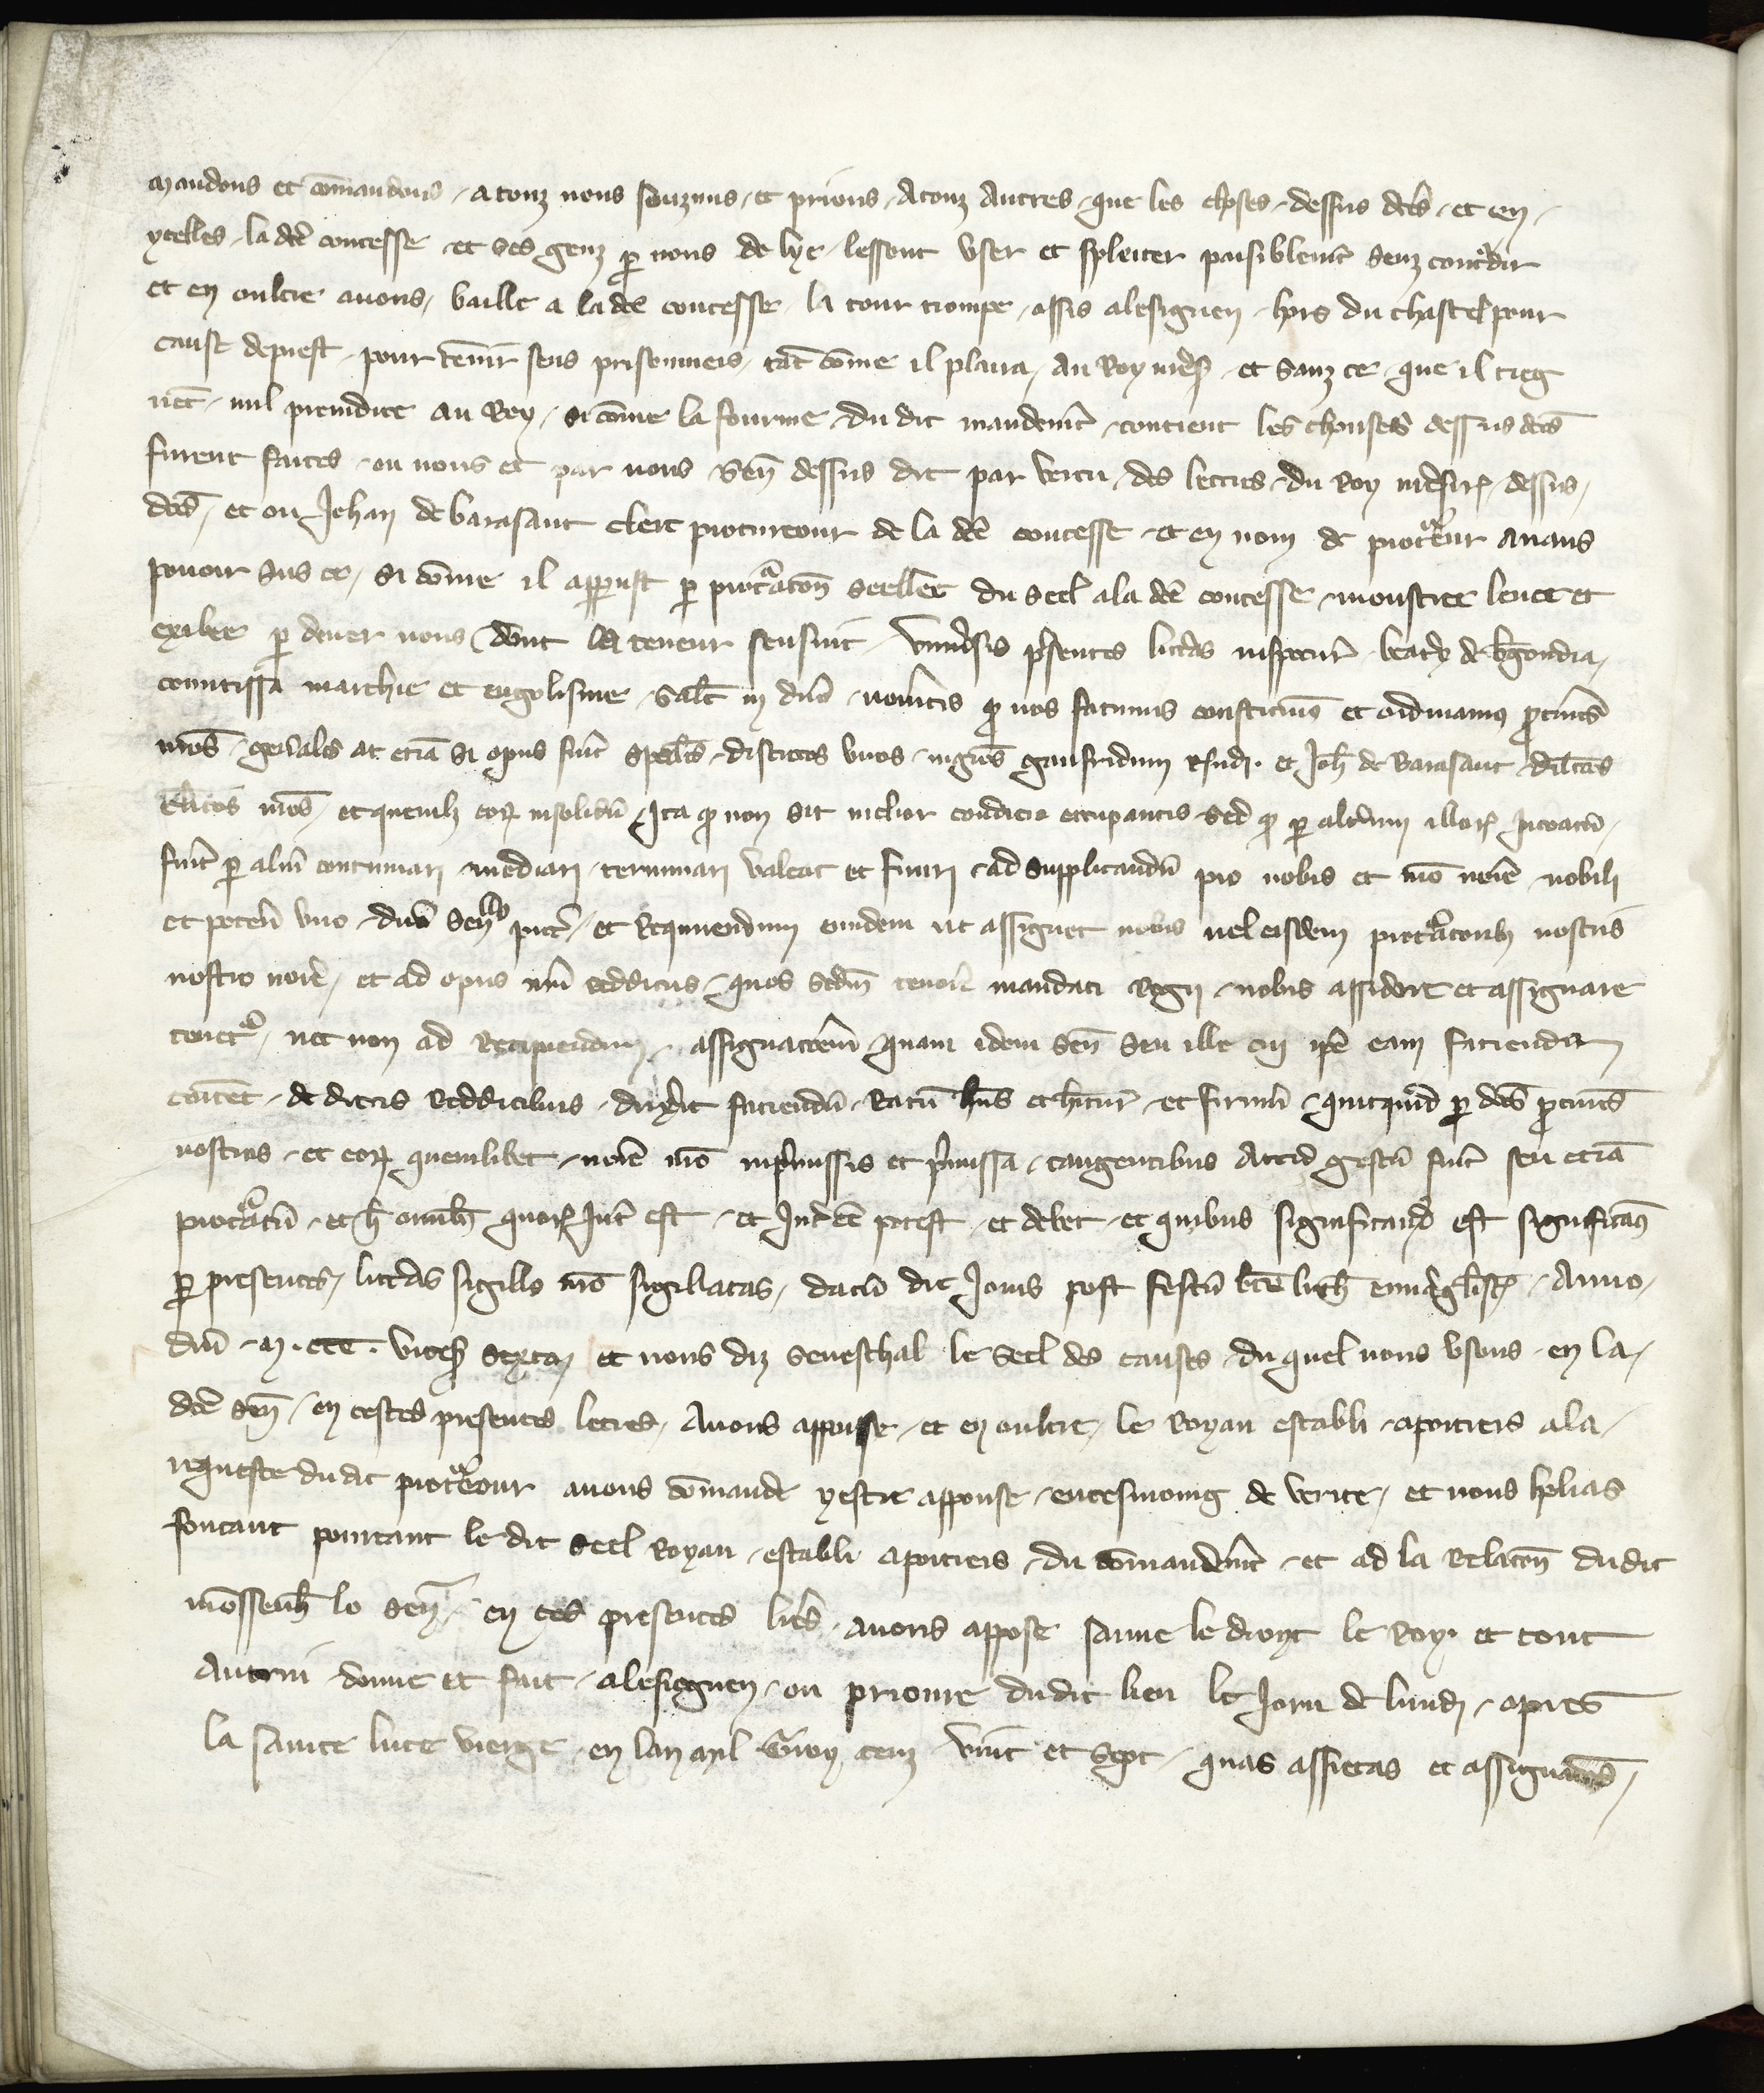 mandons et comandons a touz nous souzmis et prions a touz autres que les choses dessus dces et en
ycelles la dce contesse et ses genz p nous de lye lessent user et spleiter paisiblemt senz contdir
et en oultre avons baille a la dce contesse la tour trompe assis a lesignen hors du chastel pour
cause de prest pour tenir seus prisonners tat come il plaira au Roy mres et sanz ce que il treg
net nul preiudice au Rey si come la fourme du dit mandemt contient les chouses dessus dces
furent faites ou nous et par nous Sen dessus dit par vertu des lettres du Roy mressires dessus
dces et ou Jehan de barasant clerc procureour de la dce contesse et en nom de procreur avans
povoir sus ce si come il apparust p procracon seellee du seel a la dce contesse monstree levee et
exibee p dever nous dont la teneur sensuit Univsis psentes littas inspectur beatx de bgondia
comitissa marchie et engolisme salt in dno noveritis q nos facimus constituim et ordinamus pctores
nros genales ac etia si opus fuit speales discretos viros mgros gaufridum et Joh de Barasant dilcos
clicos nros et quemlb eor insolidu Ita q non sit melior condicio occupantis sed q p alterum illor incoatu
fuit p aliu continuari mediari terminari valeat et finiri ad supplicandu pro nobis et nro noie nobili
et potenti viro dno Senllo pict et Requirendum eundem ut assignet nobis vel eisdem procratoribz nostris
nostro noie et ad opus nrm redditus quos scdm tenore mandati Regii nobis assidere et assignare
tenet nec non ad Recipiendum assignacoem quam idem Sen seu ille cui ipe eam faciendam
comiet de dictis redditibus duxit faciendu Ratu hns et hitur et firmu quitquid p dcos pctores
nostros et eor quemlibet noie nro in pmissis et pmissa tangentibus actu gestu fuit seu etia
procratu et h omibz quor intest et int ee potest et debet et quibus significand est significam
p presentes littas sigillo nro sigillatas datu die Jovis post festu bte luch evvageliste Anno
dni m ccc vices sexto et nous diz Seneschal le seel des causes du quel nous usons en la
dce Sen en cestes presentes letres Avons appouse et en oultre le Royau establi a poitiers a la
requeste du dit procreour avons comande y estre appouse en tesmoing de verite et nous helias
fontant pourtant le dit seel Royau establi a poitiers du comandemt et ad la relacon dudit
mossenh lo sen en ces presentes lres avons appose sauve le droyt le Roy et tout
Autrui donne et fait a lesiegnen ou prioure dudit lieu le Jorn de lundi apres
la saincte luce vierge en lan myl troy cenz vint et sept quas assietas et assignacoes